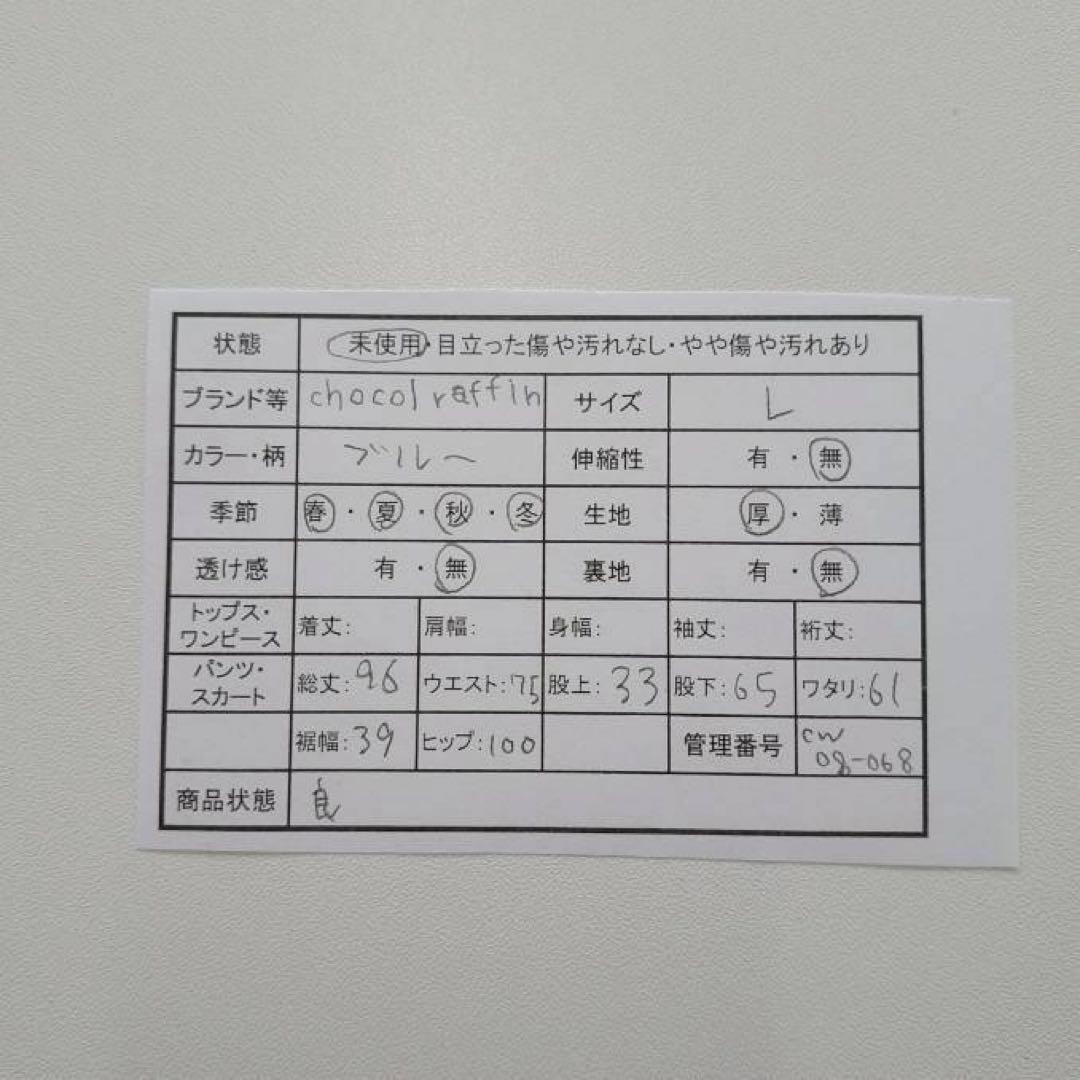 状態 未使用・目立った傷や汚れなし・やや傷や汚れあり
ブランド等 chocol raffin サイズ L
カラー・柄 ブルー 伸縮性 有・無
季節 春・夏・秋・冬 生地 厚・薄
透け感 有・無 裏地 有・無
トップス・ワンピース 着丈: 肩幅: 身幅: 袖丈: 裄丈:
パンツ・スカート 総丈:96 ウエスト:75 股上:33 股下:65 ワタリ:61
裾幅:39 ヒップ:100 管理番号 cw 08-068
商品状態 良